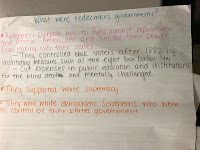 What were redeemers governments?
• Redeemers purpose was to fight against republicans
and African Americans and limited their power
from ruling over their states.
- They controlled black voters after 1882 by
instituting measures such as the eight box ballot law
- Cut expenses in public education and institutions
for the blind deaf and mentally challenged
• They supported white supremacy
• They were white democratic Southerners who were
in control of their states government